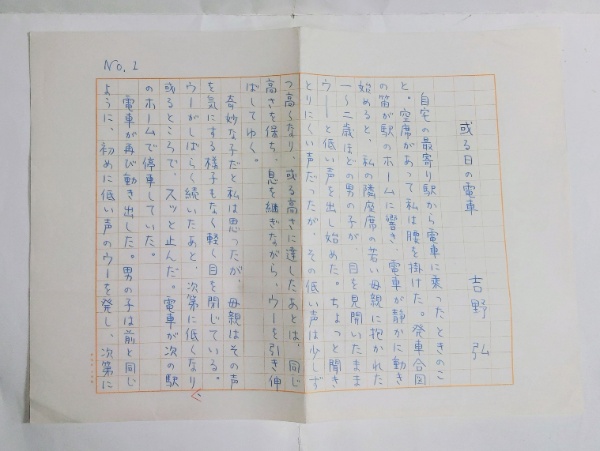 No. 1
或る日の電車
吉野 弘
自宅の最寄り駅から電車に乗ったときのこ
と。空席があって私は腰を掛けた。発車合図
の笛が駅のホームに響き、電車が静かに動き
始めると、私の隣座席の若い母親に抱かれた
一〜二歳ほどの男の子が、目を見開いたまま
ウーと低い声を出し始めた。ちょっと聞き
とりにくい声だったが、その低い声は少しず
つ高くなり、或る高さに達したあとは、同じ
高さを保ち、息を継ぎながら、ウーを引き伸
ばしてゆく。
奇妙な子だと私は思ったが、母親はその声
を気にする様子もなく軽く目を閉じている。
ウーがしばらく続いたあと、次第に低くなり
或るところで、スッと止んだ。電車が次の駅
のホームで停車していた。
電車が再び動き出した。男の子は前と同じ
ように、初めに低い声のウーを発し、次第に